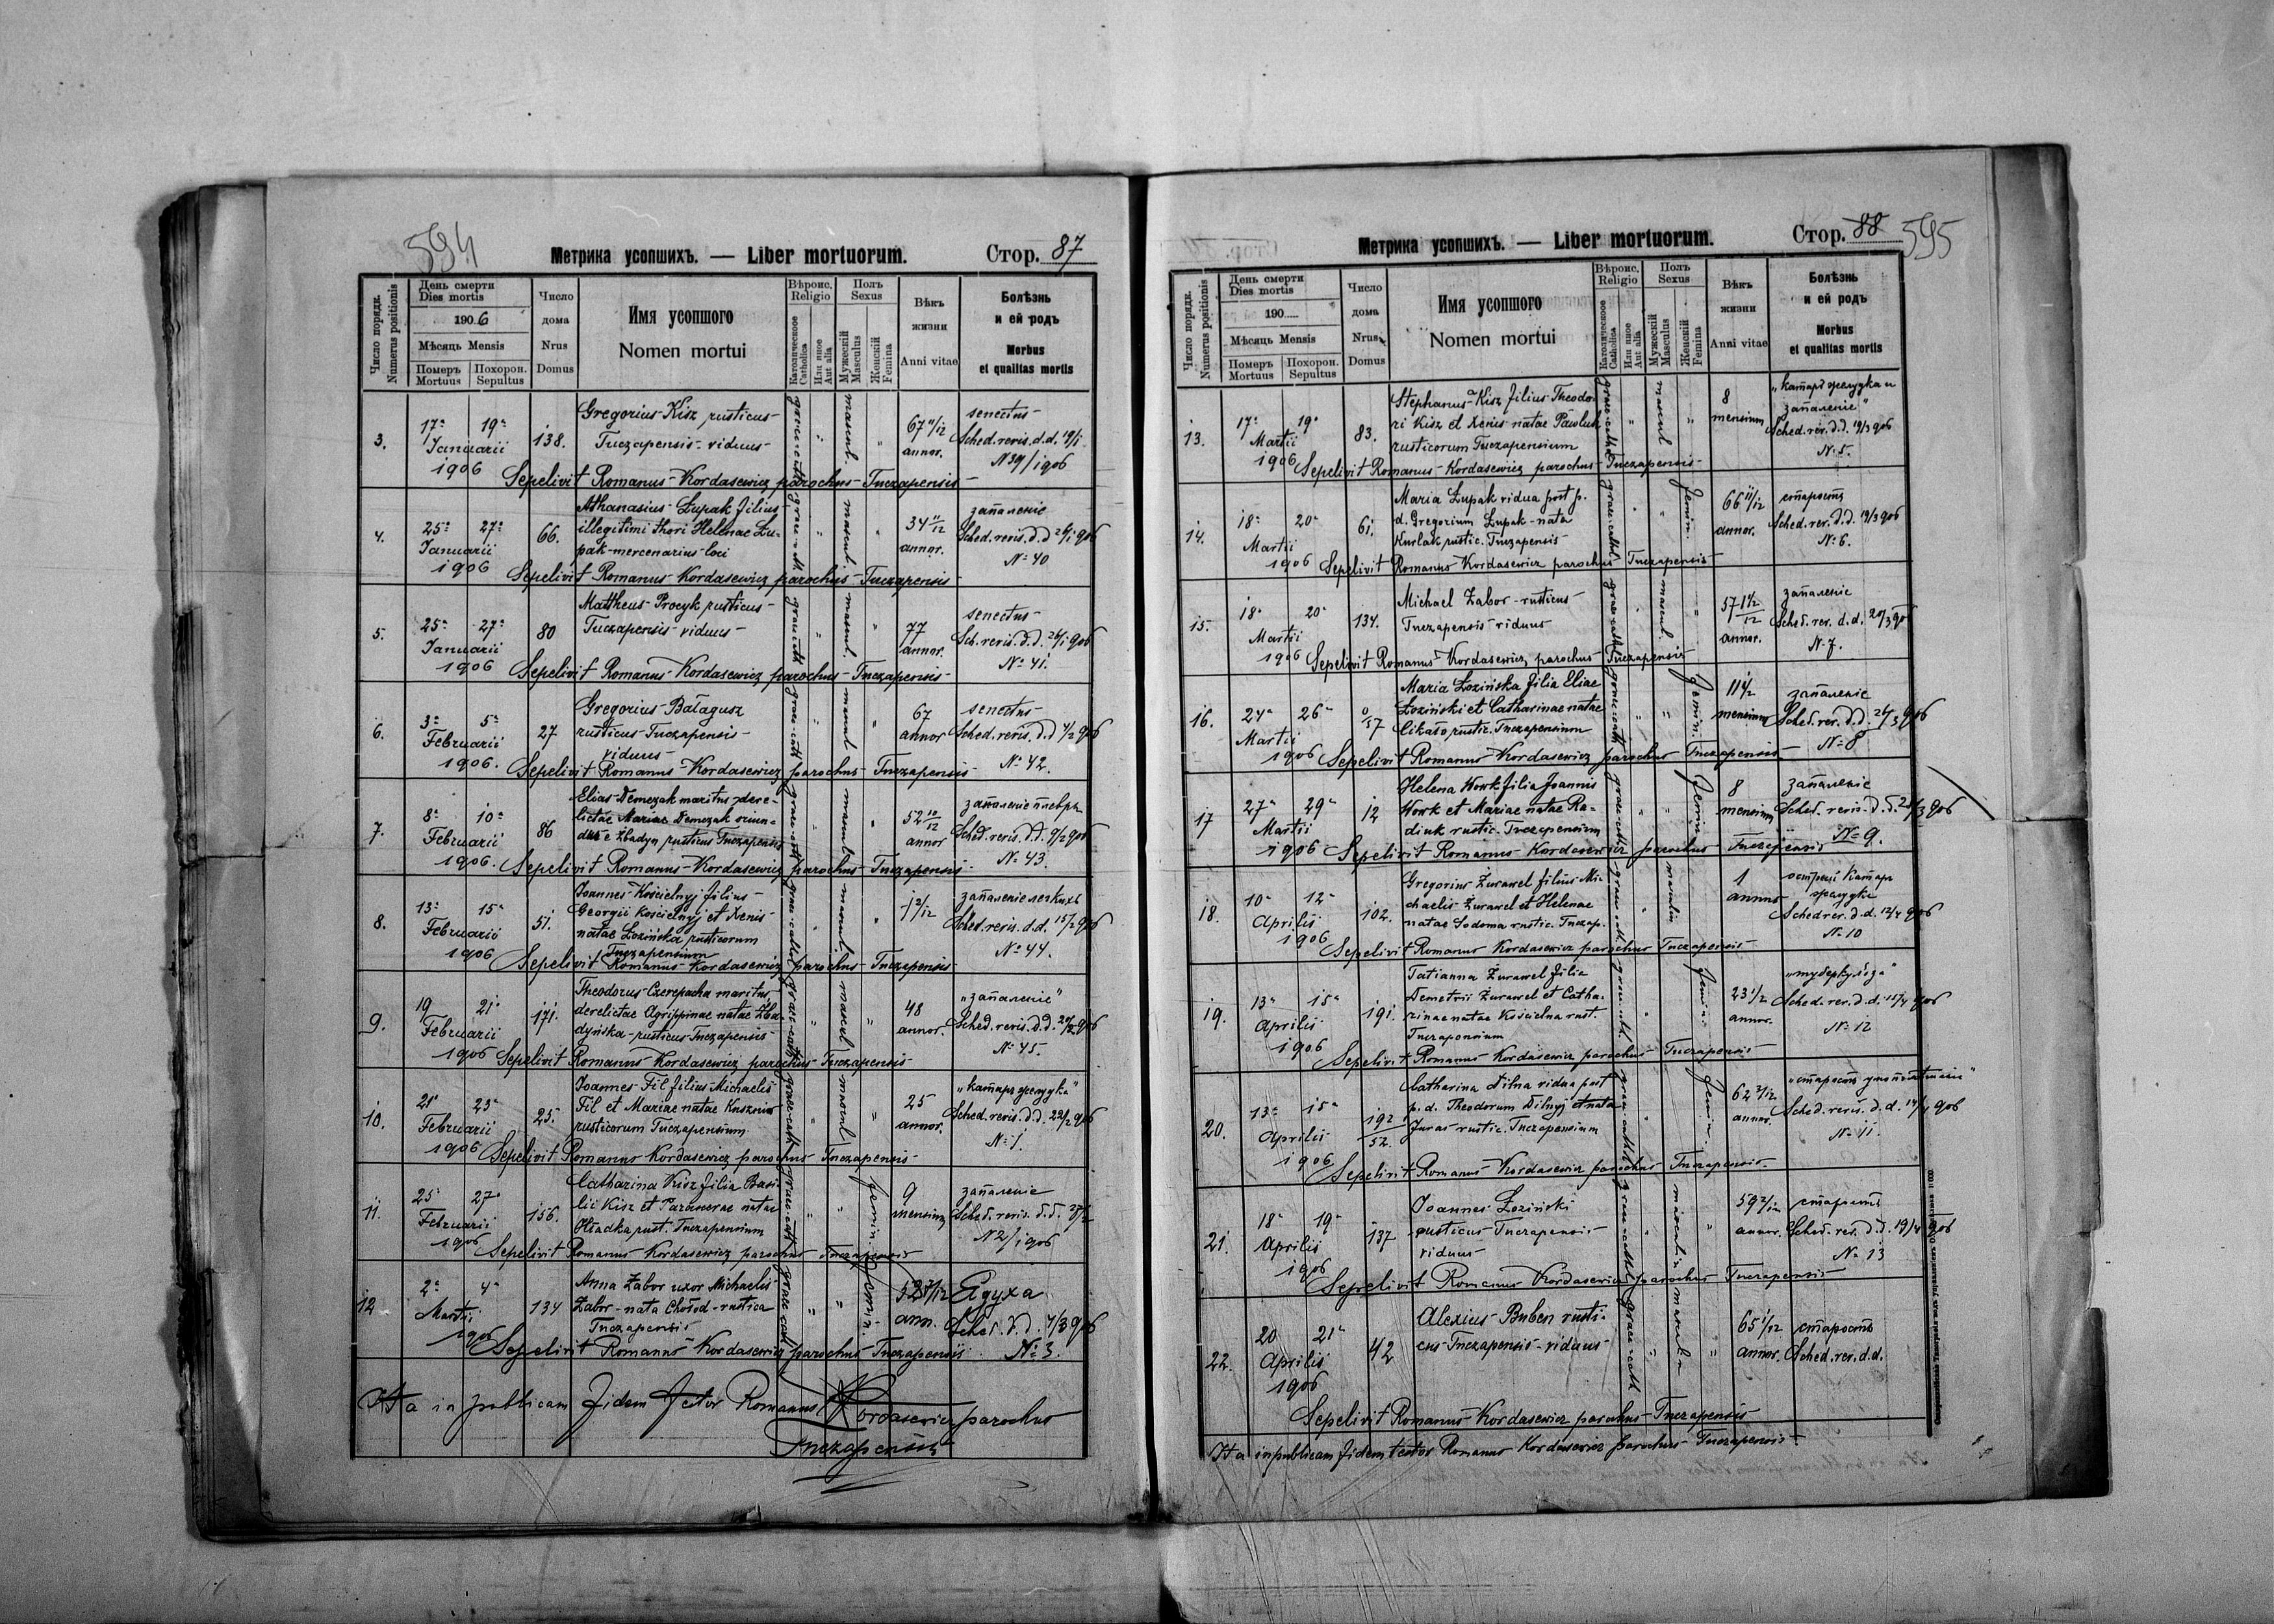 594
Метрика усопшихъ. — Liber mortuorum.
Стор. 87
Число порядк. Numerus positionis
День смерти
Dies mortis
1906
Мѣсяць Mensis
Померъ Mortuus
Похорон. Sepultus
Число дома
Nrus Domus
Имя усопшого
Nomen mortui
Вѣроис. Religio
Католическое Catholica
Или иное Aut alia
Полъ Sexus
Мужескій Masculus
Женскій Femina
Вѣкъ жизни
Anni vitae
Болѣзнь и ей родъ
Morbus et qualitas mortis
3. 17a 19a Januarii 1906 138.
Gregorius Kisz rusticus
Tuczapensis viduus
graec. cath. mascul. 67 11/12 annor.
senectus
Sched. revis. d. d. 19/1
N 39/1906
Sepelivit Romanus Kordasewicz parochus Tuczapensis
4. 25a 27a Januarii 1906 66.
Athanasius Łupak filius
illegitimi thori Helenae Łu-
pak mercenarius loci
mascul. 34 11/12 annor.
запаленіе
Sched. revis. d. d. 26/1 906
No 40
Sepelivit Romanus Kordasewicz parochus Tuczapensis
5. 25a 27a Januarii 1906 80
Mattheus Procyk rusticus
Tuczapensis viduus
graec. cath. mascul. 77 annor.
senectus
Sch. revis. d. d. 26/1 906
No 41.
Sepelivit Romanus Kordasewicz parochus Tuczapensis
6. 3a 5a Februarii 1906. 27
Gregorius Bałagusz
rusticus Tuczapensis
viduus
graec. cath. mascul. 67 annor
senectus
Sched. revis. d. d. 4/2 906
No 42.
Sepelivit Romanus Kordasewicz parochus Tuczapensis
7. 8a 10a Februarii 1906. 86
Elias Demczak maritus dere-
lictae Mariae Demczak oriun-
dus e Zbadyn rusticus Tuczapensis
graec. cath. mascul. 52 10/12 annor
запаленіе плевръ
Sched. revis. d. d. 9/2 906
No 43.
Sepelivit Romanus Kordasewicz parochus Tuczapensis
8. 13a 15a Februarii 1906 51.
Joannes Kościelnyj filius
Georgii Kościelnyj et Xenis
natae Łozińska rusticorum
Tuczapensium
graec. cathol. mascul. 1 2/12
запаленіе легкихъ
Sched. revis. d. d. 15/2 906
No 44.
Sepelivit Romanus Kordasewicz parochus Tuczapensis
9. 19 21a Februarii 1906 171.
Theodorus Czerepacha maritus
derelictae Agrippinae natae Zba-
dyńska rusticus Tuczapensis
graec. cath. mascul. 48 annor.
„запаленіе“
Sched. revis. d. d. 906
No 45.
Sepelivit Romanus Kordasewicz parochus Tuczapensis
10. 21a 23a Februarii 1906 25.
Joannes Fil filius Michaelis
Fil et Mariae natae Kusznir
rusticorum Tuczapensium
graec. cath. mascul. 25 annor.
„катаръ желудка“
Sched. revis. d. d. 22/2 906
No 1
Sepelivit Romanus Kordasewicz parochus Tuczapensis
11. 25 27a Februarii 1906 156.
Catharina Kisz filia Basi-
lii Kisz et Parascevae natae
Hładka rust. Tuczapensium
graec. cath. femin. 9 mensium
запаленіе
Sched. revis. d. d. 27/2
N 2/1906
Sepelivit Romanus Kordasewicz parochus Tuczapensis
12 2a 4a Martii 1906 134
Anna Zabor uxor Michaelis
Zabor nata Chołod rustica
Tuczapensis
graec. cath. femin. ann.
Sched. d. d. 4/3 906
No 3.
Sepelivit Romanus Kordasewicz parochus Tuczapensis
Ita in publicam fidem testor Romanus Kordasewicz parochus
Tuczapensis
Метрика усопшихъ. — Liber mortuorum.
Стор. 88
595
Число порядк. Numerus positionis
День смерти
Dies mortis
190
Мѣсяць Mensis
Померъ Mortuus
Похорон. Sepultus
Число дома
Nrus Domus
Имя усопшого
Nomen mortui
Вѣроис. Religio
Католическое Catholica
Или иное Aut alia
Полъ Sexus
Мужескій Masculus
Женскій Femina
Вѣкъ жизни
Anni vitae
Болѣзнь и ей родъ
Morbus et qualitas mortis
13. 17a 19a Martii 1906 83.
Stephanus Kisz filius Theodo-
ri Kisz et Xenis natae Pawluk
rusticorum Tuczapensium
graec. cathol. mascul. 8 mensium
„катаръ желудка и
запаленіе“
Sched. rev. d. d. 19/3 906
No 5.
Sepelivit Romanus Kordasewicz parochus Tuczapensis
14. 18a 20a Martii 1906 61.
Maria Łupak vidua post p.
d. Gregorium Łupak nata
Kurlak rustic. Tuczapensis
graec. cathol. femin. 66 11/12 annor.
старость
Sched. rev. d. d. 19/3 906
No 6.
Sepelivit Romanus Kordasewicz parochus Tuczapensis
15. 18a 20a Martii 1906 134.
Michael Zabor rusticus
Tuczapensis viduus
graec. cathol. mascul. annor.
запаленіе
Sched. rev. d. d. 20/3 90
N. 7.
Sepelivit Romanus Kordasewicz parochus Tuczapensis
16. 24a 26a Martii 1906 0/57
Maria Łozińska filia Eliae
Łoziński et Catharinae natae
Cikało rustic. Tuczapensium
graec. cath. femin. 11 1/2 mensium
запаленіе
Sched. rev. d. d. 26/3 906
No 8
Sepelivit Romanus Kordasewicz parochus Tuczapensis
17 27a 29a Martii 1906 12
Helena Wowk filia Joannis
Wowk et Mariae natae Ra-
diuk rustic. Tuczapensium
graec. cathol. femin. 8 mensium
запаленіе
Sched. revis. d. d. 28/3 906
No 9.
Sepelivit Romanus Kordasewicz parochus Tuczapensis
18. 10a 12a Aprilis 1906 102.
Gregorius Żurawel filius Mi-
chaelis Żurawel et Helenae
natae Sodoma rustic. Tuczap.
graec. cath. masculin 1 annus
острый катаръ
желудка
Sched rev. d. d. 12/4 906
No 10
Sepelivit Romanus Kordasewicz parochus Tuczapensis
19. 13a 15a Aprilis 1906 191.
Tatianna Żurawel filia
Demetrii Żurawel et Catha-
rinae natae Kościelna rust.
Tuczapensium
femin. 23 1/2 annor.
„туберкулоза“
Sched. rev. d. d. 15/4 906
No 12
Sepelivit Romanus Kordasewicz parochus Tuczapensis
20. 13a 15a Aprilis 1906 192/52.
Catharina Dilna vidua post
p. d. Theodorum Dilnyj et nata
Juras rustic. Tuczapensium
graec. cathol. femin. 62 annor.
Sched. revis. d. d. 14/4 906
No 11.
Sepelivit Romanus Kordasewicz parochus Tuczapensis
21. 18a 19a Aprilis 1906 137
Joannes Łoziński
rusticus Tuczapensis
viduus
graec. cathol. masculin 59 2/12 annor.
старость
Sched. rev. d. d. 19/4 906
No 13
Sepelivit Romanus Kordasewicz parochus Tuczapensis
22. 20 21a Aprilis 1906 42
Alexius Buben rusti-
cus Tuczapensis viduus
graec. cath masculin 65 1/12 annor.
старость
Sched. rev. d. d.
Sepelivit Romanus Kordasewicz parochus Tuczapensis
Ita in publicam fidem testor Romanus Kordasewicz parochus Tuczapensis